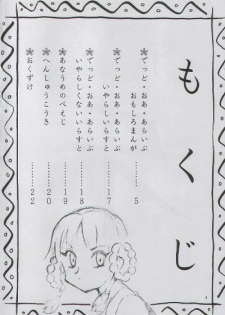 もくじ
❀でっど・おあ・あらいぶ
おもしろまんが……… 5
❀でっど・おあ・あらいぶ
いやらしいらすと………17
❀でっど・おあ・あらいぶ
いやらしくないいらすと………18
❀あなうめのぺえじ………19
❀へんしゅうこうき………20
❀おくずけ………22